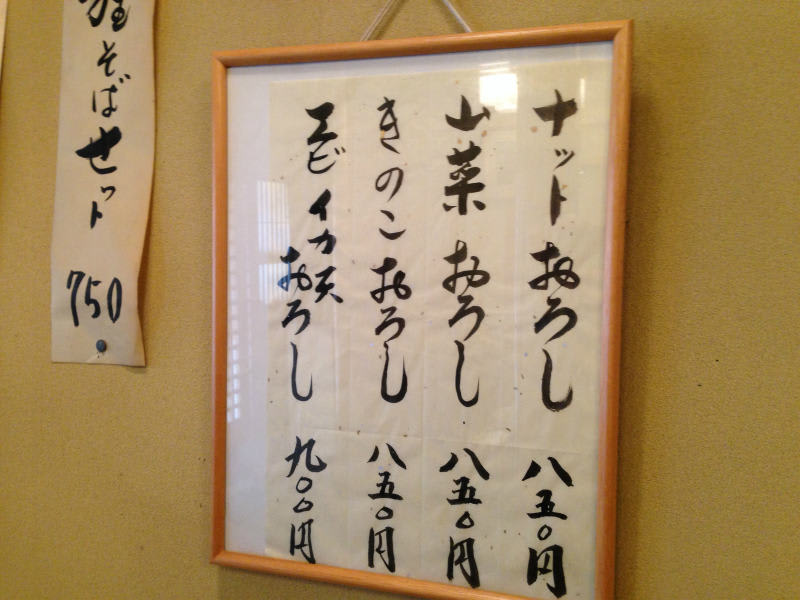 ナットおろし 八五〇円
山菜おろし 八五〇円
きのこおろし 八五〇円
エビイカ天おろし 九〇〇円
そばセット 750